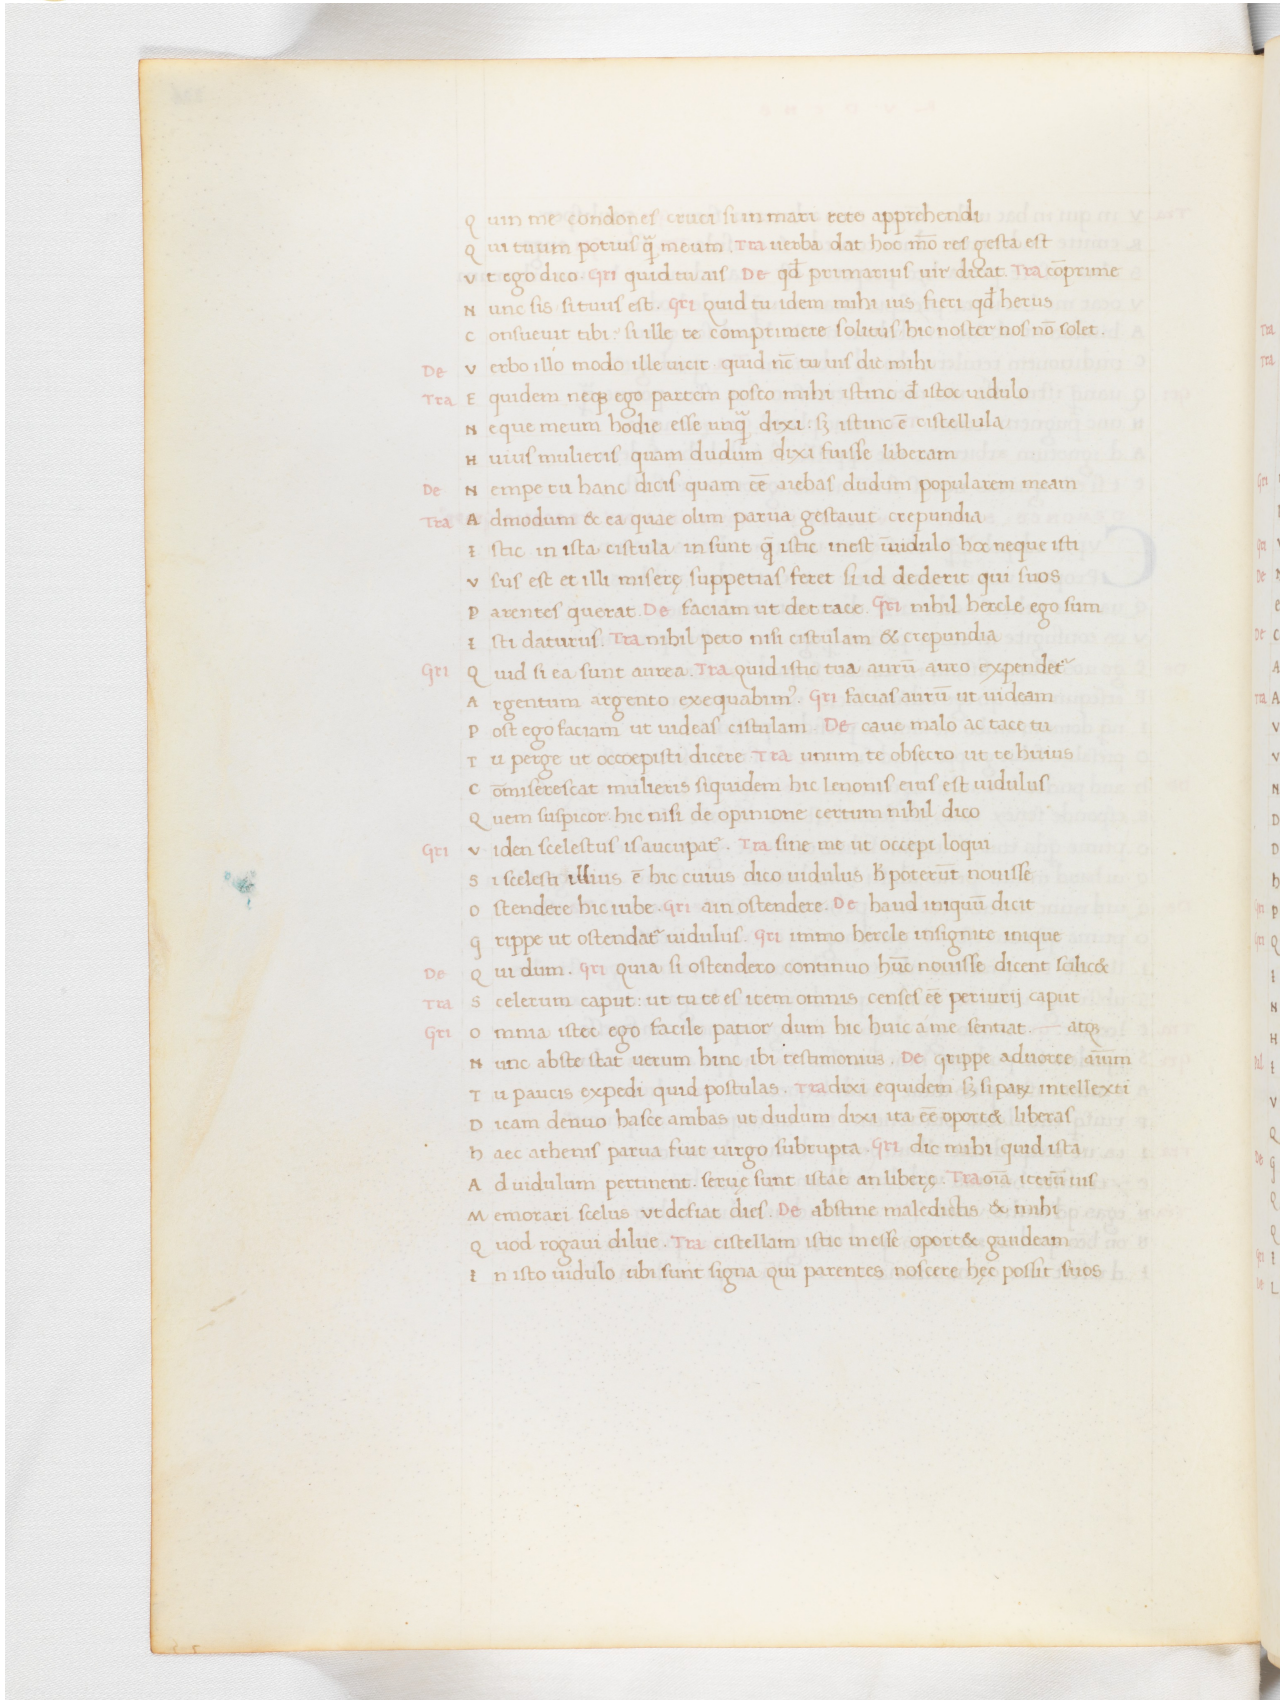 Quin me condones cruci si in mari rete apprehendi
Qui tuum potius q̃ meum. Tra uerba dat hoc mõ res gesta est
Vt ego dico. Gri quid tu ais De qđ primarius uir dicat Tra cõprime
Nunc sis si tuus est. Gri quid tu idem mihi ius fieri qđ herus
Consueuit tibi: si ille te comprimere solitus hic noster nos nõ solet.
De Verbo illo modo ille uicit quid nc̄ tu uis dic mihi
Tra Equidem neqꝫ ego partem posco mihi istinc đ istoc uidulo
Neque meum hodie esse unq̃ dixi: sꝫ istinc ē cistellula
Huius mulieris quam dudum dixi fuisse liberam
De Nempe tu hanc dicis quam eē aiebas dudum popularem meam
Tra Admodum & ea quae olim parua gestauit crepundia
Istic in ista cistula insunt q̄ istic inest uidulo hoc neque isti
Vsus est et illi miserę suppetias feret si id dederit qui suos
Parentes querat. De faciam ut det tace. Gri nihil hercle ego sum
Isti daturus. Tra nihil peto nisi cistulam & crepundia
Gri Quid si ea sunt aurea. Tra quid istic tua aurū auro expendet᷑
Argentum argento exequabimꝰ. Gri facias aurū ut uideam
Post ego faciam ut uideas cistulam. De caue malo ac tace tu
Tu perge ut occoepisti dicere Tra unum te obsecro ut te huius
Cōmiserescat mulieris siquidem hic lenonis eius est uidulus
Quem suspicor. hic nisi de opinione certum nihil dico
Gri Viden scelestus is aucupat᷑. Tra sine me ut occepi loqui
Si scelesti illius ē hic cuius dico uidulus h̄ poterūt nouisse
Ostendere hic iube. Gri ain ostendere. De haud iniquū dicit
Grippe ut ostendat᷑ uidulus. Gri immo hercle insignite inique
De Qui dum. Gri quia si ostendero continuo hūc nouisse dicent scilic&
Tra Scelerum caput: ut tu te es item omnis censes eē periurij caput
Gri Omnia istec ego facile patior dum hic huic a me sentiat. — atqꝫ
Nunc abste stat uerum hinc ibi testimonius. De grippe aduorte aīum
Tu paucis expedi quid postulas. Tra dixi equidem sꝫ si paꝝ intellexti
Dicam denuo hasce ambas ut dudum dixi ita eē oport& liberas
Haec athenis parua fuit uirgo subrupta. Gri dic mihi quid ista
Ad uidulum pertinent. seruę sunt istae an liberę. Tra oīa iterū uis
Memorari scelus ut defiat dies. De abstine maledictis & mihi
Quod rogaui dilue. Tra cistellam istic inesse oport& gaudeam
In isto uidulo ubi sunt signa qui parentes noscere hęc possit suos